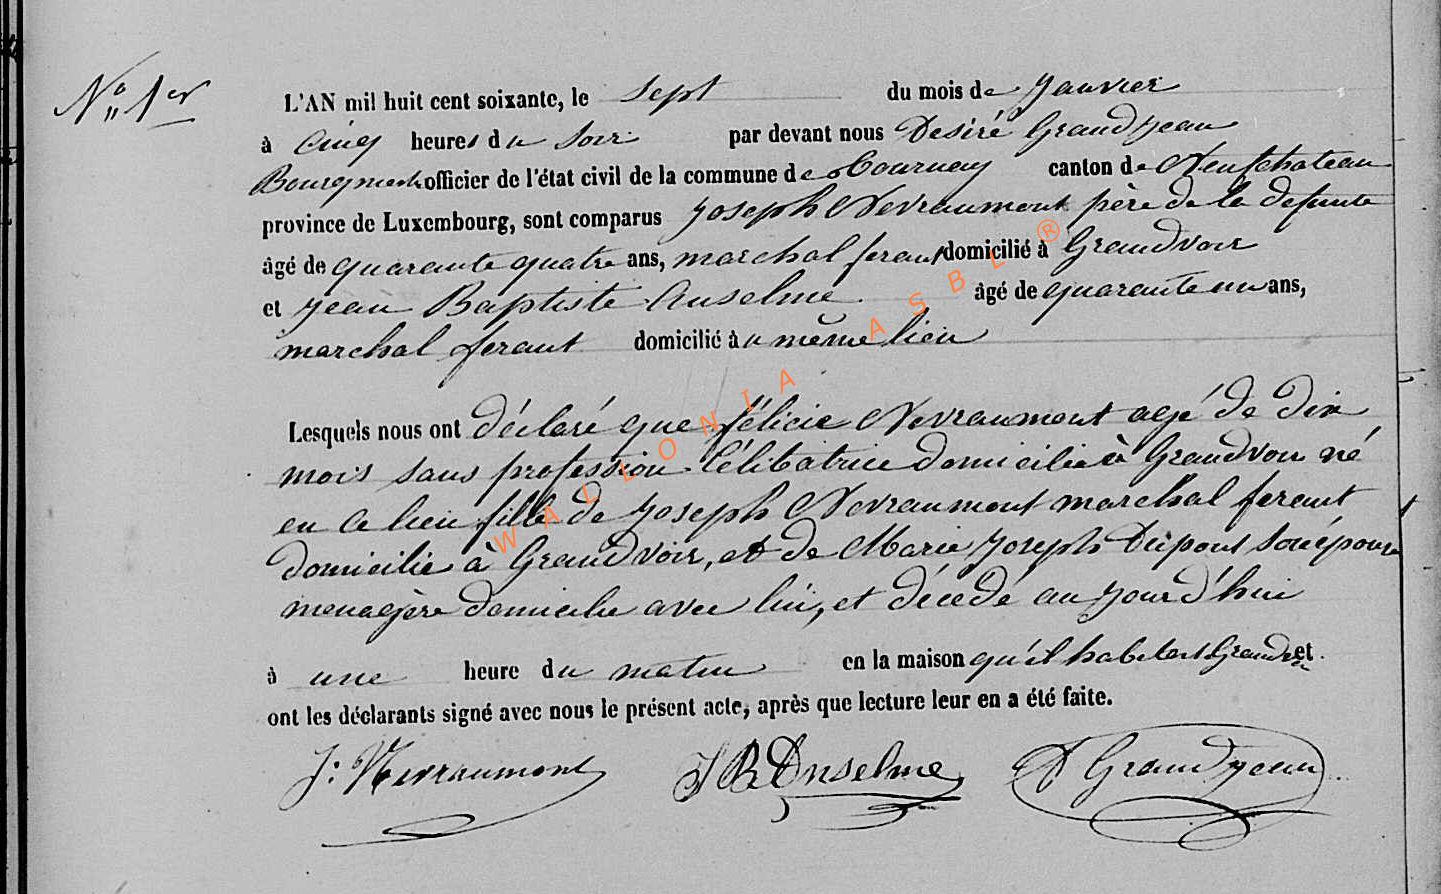 N° 1er
L'AN mil huit cent soixante, le sept du mois de Janvier
à cinq heures du soir par devant nous Desiré Grandjean
Bourgmestre officier de l'état civil de la commune de Tournay canton de Neufchateau
province de Luxembourg, sont comparus Joseph Nevraumont père de la defunte
âgé de quarante quatre ans, marchal ferant domicilié à Grandvoir
et Jean Baptiste Anselme âgé de quarante un ans,
marchal ferant domicilié au même lieu
Lesquels nous ont déclaré que félicie Nevraumont agé de dix
mois sans profession Célibatrice domicilie à Grandvoir né
en ce lieu fille de Joseph Nevraumont marchal ferant
domicilie à Grandvoir, et de Marie Joseph Dupont son épouse
menagère domicilie avec lui, et décédé aujourd'hui
à une heure du matin en la maison qu'il habitait Grandvoir et
ont les déclarants signé avec nous le présent acte, après que lecture leur en a été faite.
J: Nevraumont JB Anselme D Grandjean
WALLONIA ASBL ®